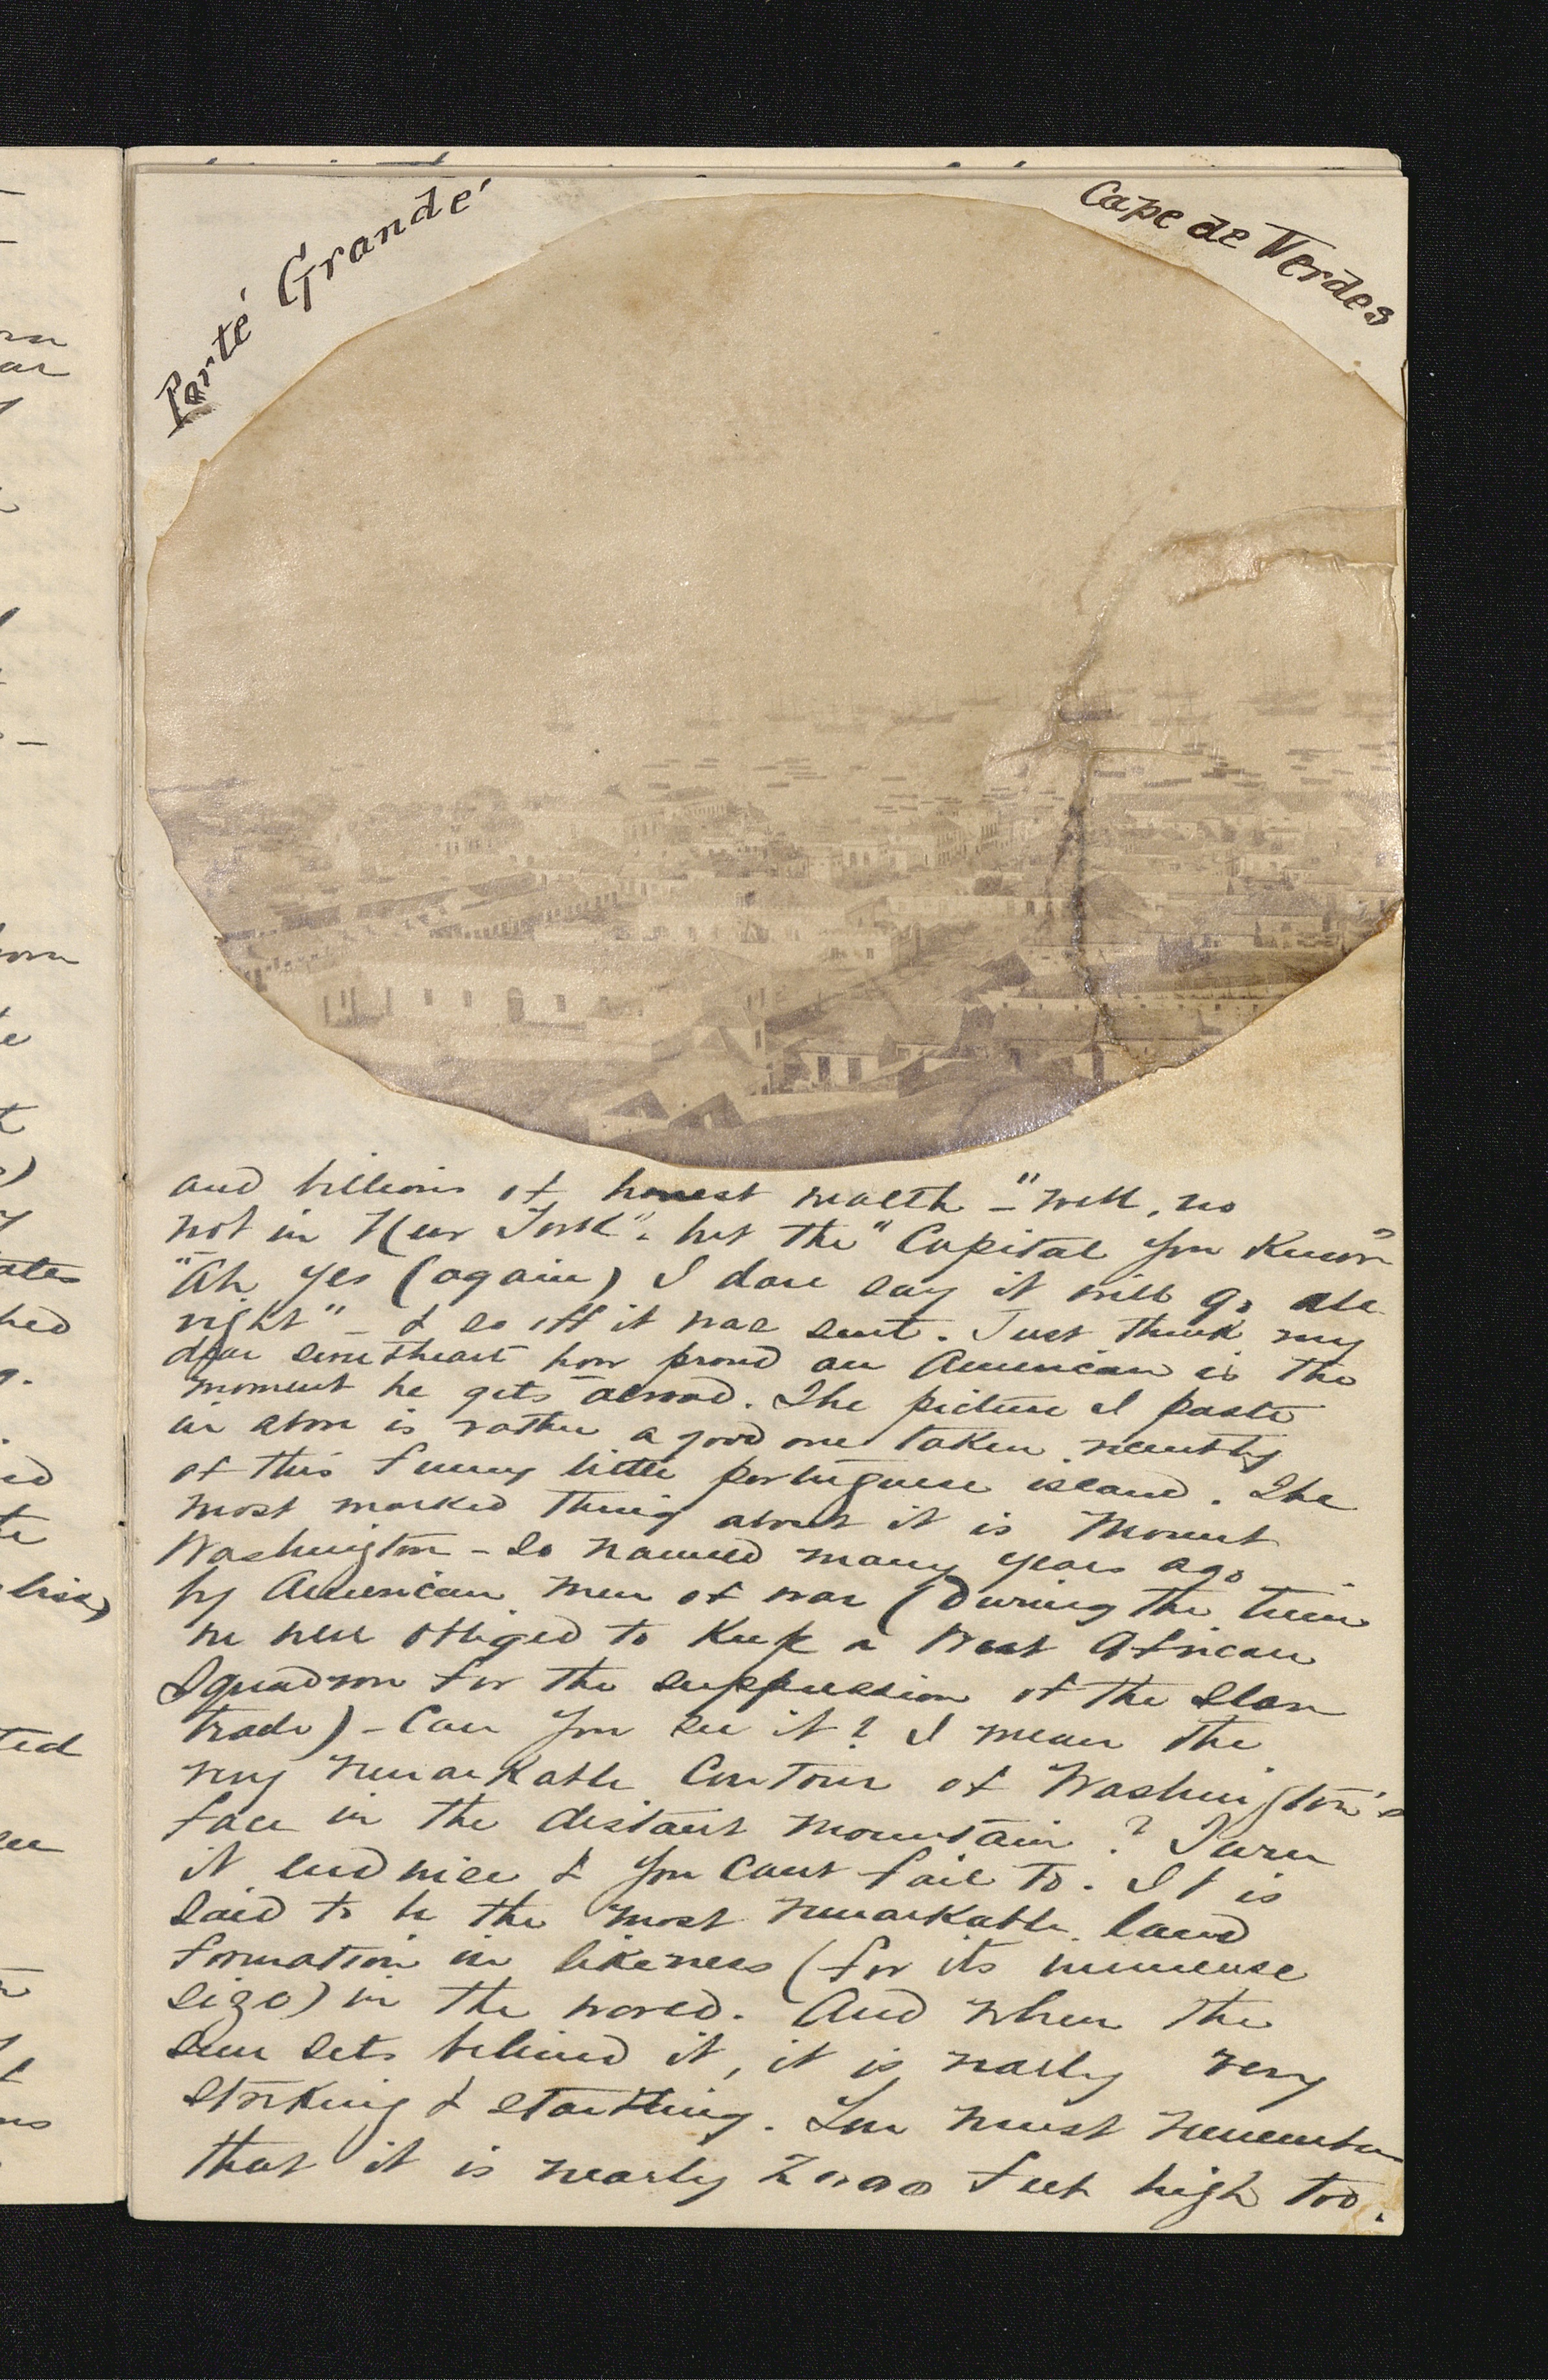 Porté Grandé
Cape de Verdes
and billions of honest wealth - "Well, no
not in New York". but the "Capital you know"
"Ah yes (again) I dare say it will go all
right" - & so off it was sent. Just think my
dear sweetheart how proud an American is the
moment he gets abroad. The picture I paste
in above is rather a good one taken recently
of this funny little portuguese island. The
most marked thing about it is Mount
Washington - so named many years ago
by American men of war (During the time
we were obliged to Keep a West African
Squadron for the suppression of the slave
trade) - Can you see it? I mean the
very remarkable Contour of Washington's
face in the distant mountain? Turn
it endwise & you cant fail to. It is
said to be the most remarkable land
formation in likeness (for its immense
size) in the world. And when the
sun sets behind it, it is really very
striking & startling. You must remember
that it is nearly feet high too.
ates
hed
ted